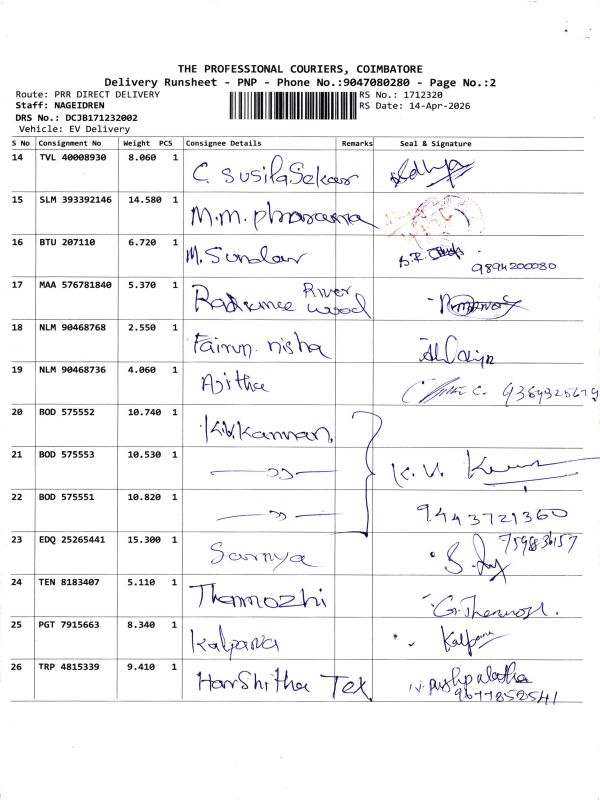 THE PROFESSIONAL COURIERS, COIMBATORE
Delivery Runsheet - PNP - Phone No.:9047080280 - Page No.:2
Route: PRR DIRECT DELIVERY RS No.: 1712320
Staff: NAGEIDREN RS Date: 14-Apr-2026
DRS No.: DCJB171232002
Vehicle: EV Delivery
S No Consignment No Weight PCS Consignee Details Remarks Seal & Signature
14 TVL 40008930 8.060 1 C. SusilaSekar
15 SLM 393392146 14.580 1 M.M.
16 BTU 207110 6.720 1 M. Sundar 9894200080
17 MAA 576781840 5.370 1 River wood
18 NLM 90468768 2.550 1 nisha
19 NLM 90468736 4.060 1 Ajitha C.
20 BOD 575552 10.740 1 K.V.Kannan
21 BOD 575553 10.530 1 K. V.
22 BOD 575551 10.820 1 9443721360
23 EDQ 25265441 15.300 1 Sarnya
24 TEN 8183407 5.110 1 Thenmozhi G.
25 PGT 7915663 8.340 1 Kalpana Kalpana
26 TRP 4815339 9.410 1 HarShitha Tex. pushpalatha
9677852541